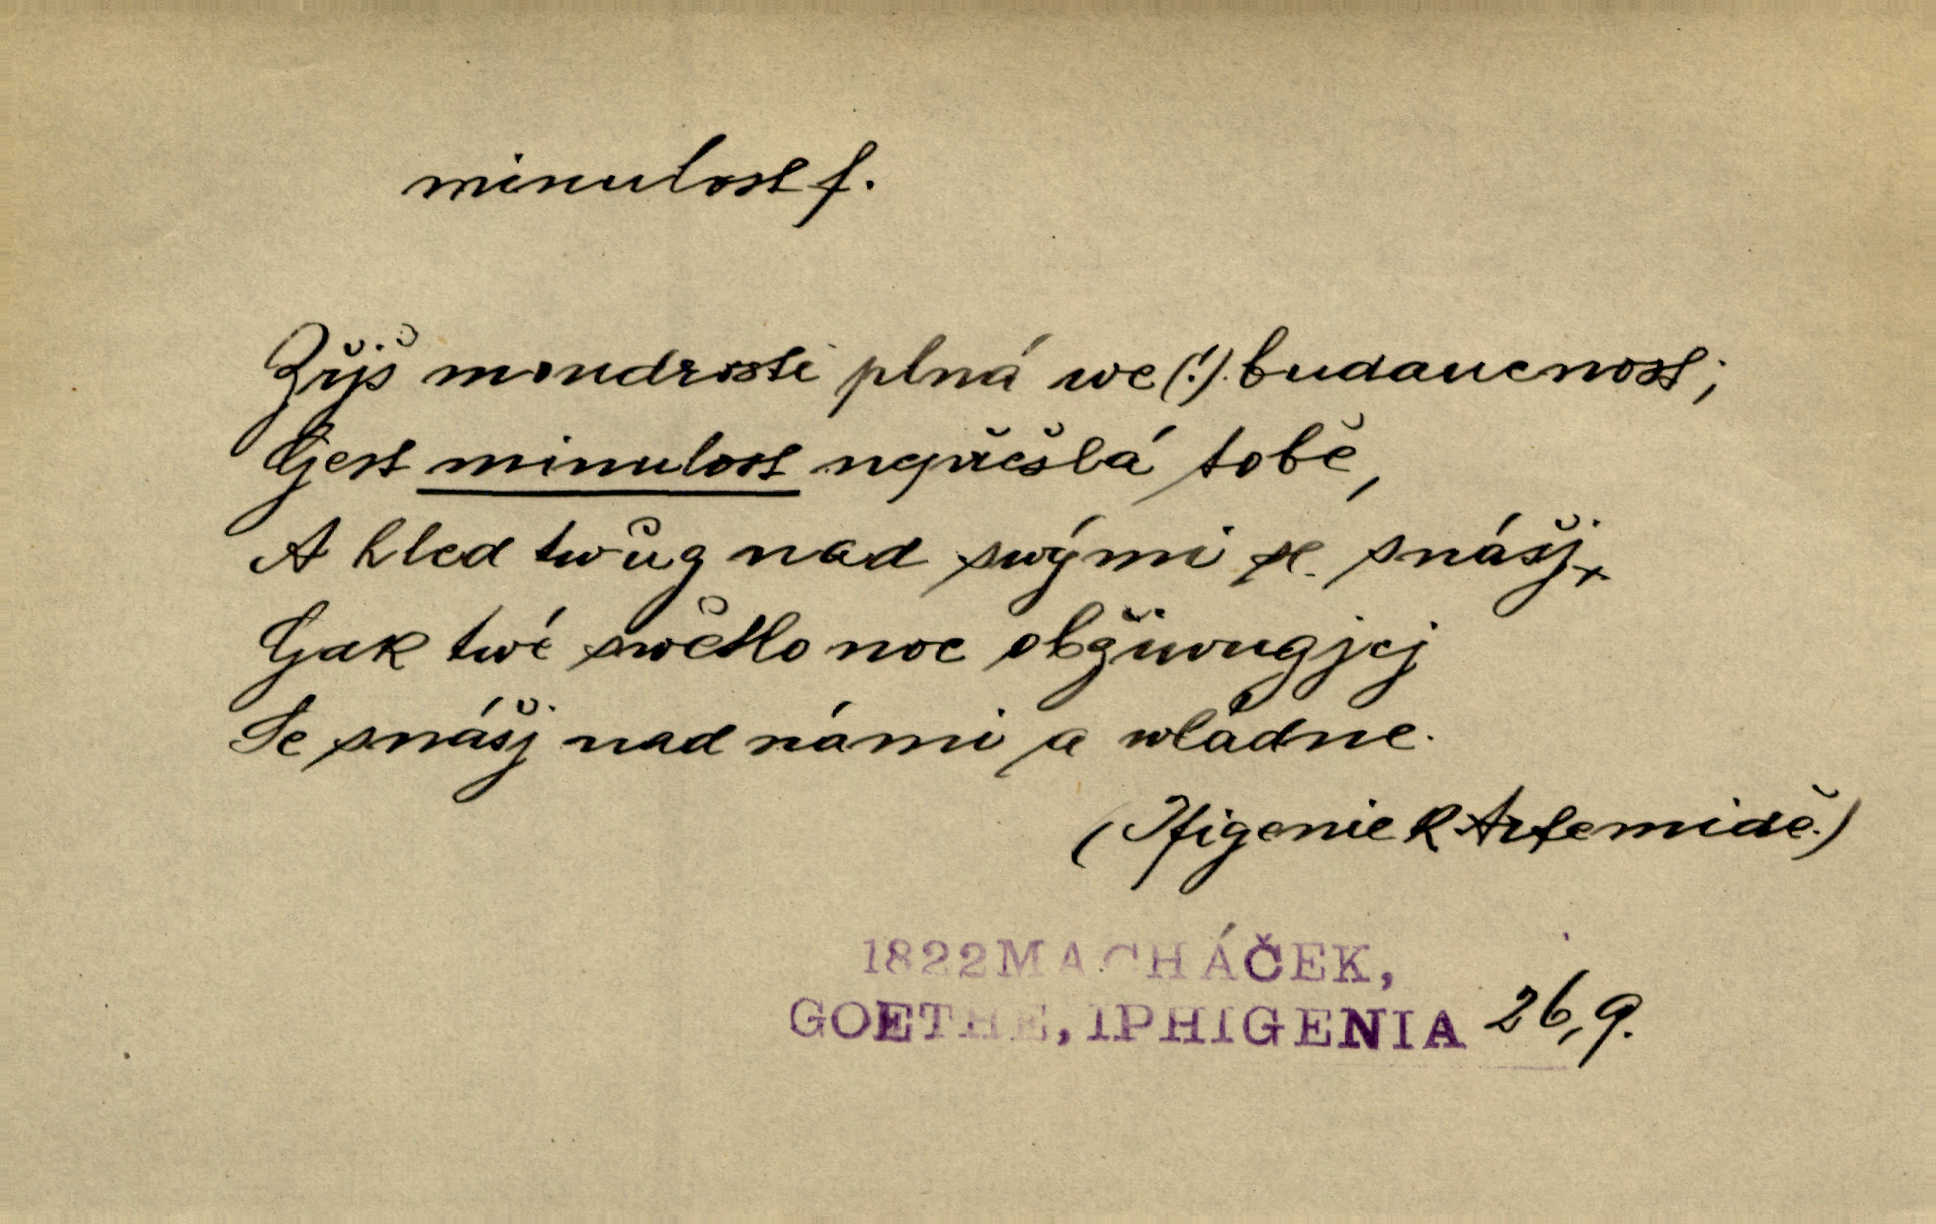 minulost f.
Zřjš moudrosti plná we (!) budaucnost;
Gest minulost nepřešlá tobě,
A hled twůg nad swými se snášj,
Gak twé swětlo noc obžiwugjcj
Se snášj nad námi a wládne.
(Ifigenie k Artemidě.)
1822 MACHÁČEK,
GOETHE, IPHIGENIA 26, 9.